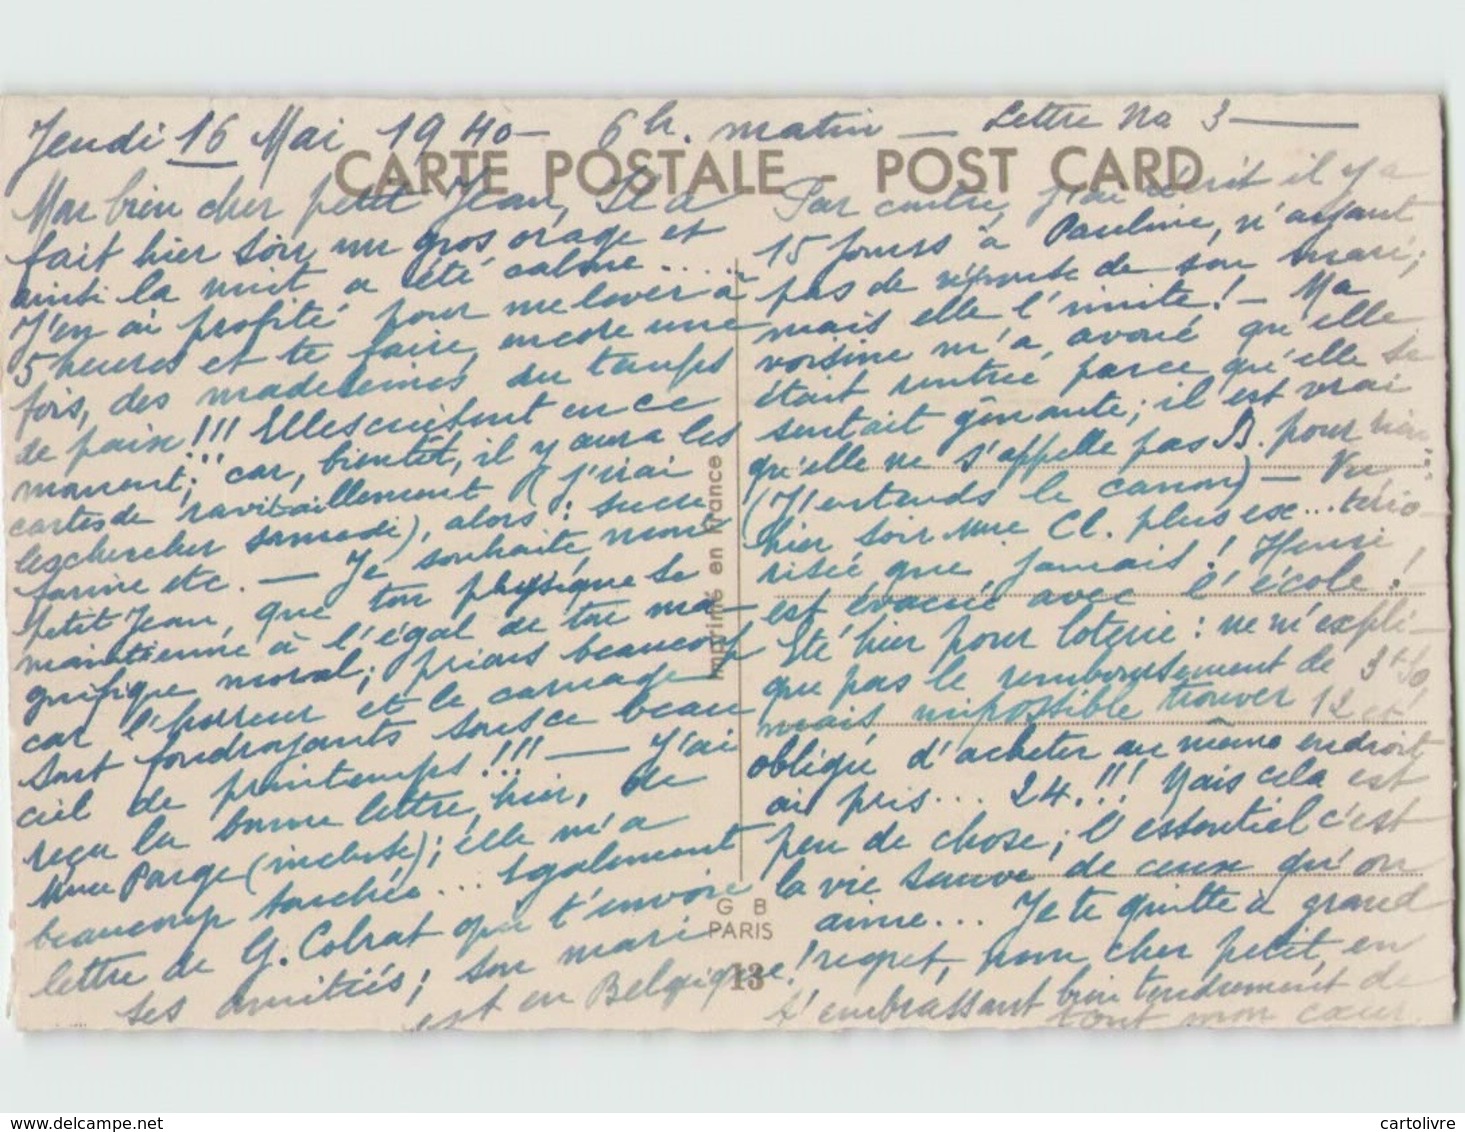 Jeudi 16 Mai 1940 - 6h. matin - Lettre No 3
CARTE POSTALE - POST CARD
Mon bien cher petit Jean, Il a
fait hier soir un gros orage et
ainsi la nuit a été calme.....
J'en ai profité pour me lever à
5 heures et te faire, encore une
fois, des madeleines du temps
de paix!!! Elles cuisent en ce
moment; car, bientôt, il y aura les
cartes de ravitaillement (j'irai
les chercher samedi), alors: sucre
farine etc. - Je souhaite, mon
petit Jean, que ton physique se
maintienne à l'égal de ton ma-
gnifique moral; prions beaucoup
car l'horreur et le carnage
sont foudroyants sous ce beau
ciel de printemps!!! - J'ai
reçu la bonne lettre, hier, de
Mme Parge (incluse); elle m'a
beaucoup touchée... également
lettre de G. Colrat qui t'envoie
ses amitiés; son mari
est en Belgique!
Par contre, j'ai écrit il y a
15 jours à Pauline, n'ayant
pas de réponse de son mari;
mais elle l'invite! - Ma
voisine m'a avoué qu'elle
était rentrée parce qu'elle se
sentait gênante; il est vrai
qu'elle ne s'appelle pas B. pour rien
(J'entends le canon) - Vu
hier soir Mme Cl. plus ex...tério-
risée que jamais! Henri
est évacué avec l'école!
Eté hier pour loterie: ne m'expli-
que pas le remboursement de 3f50
mais impossible trouver 12 et
obligée d'acheter au même endroit
ai pris... 24!!! Mais cela est
peu de chose; l'essentiel c'est
la vie sauve de ceux qu'on
aime... Je te quitte à grand
regret, mon cher petit, en
t'embrassant bien tendrement de
tout mon cœur.
Imprimé en France
G B
PARIS
13
www.delcampe.net
cartolivre